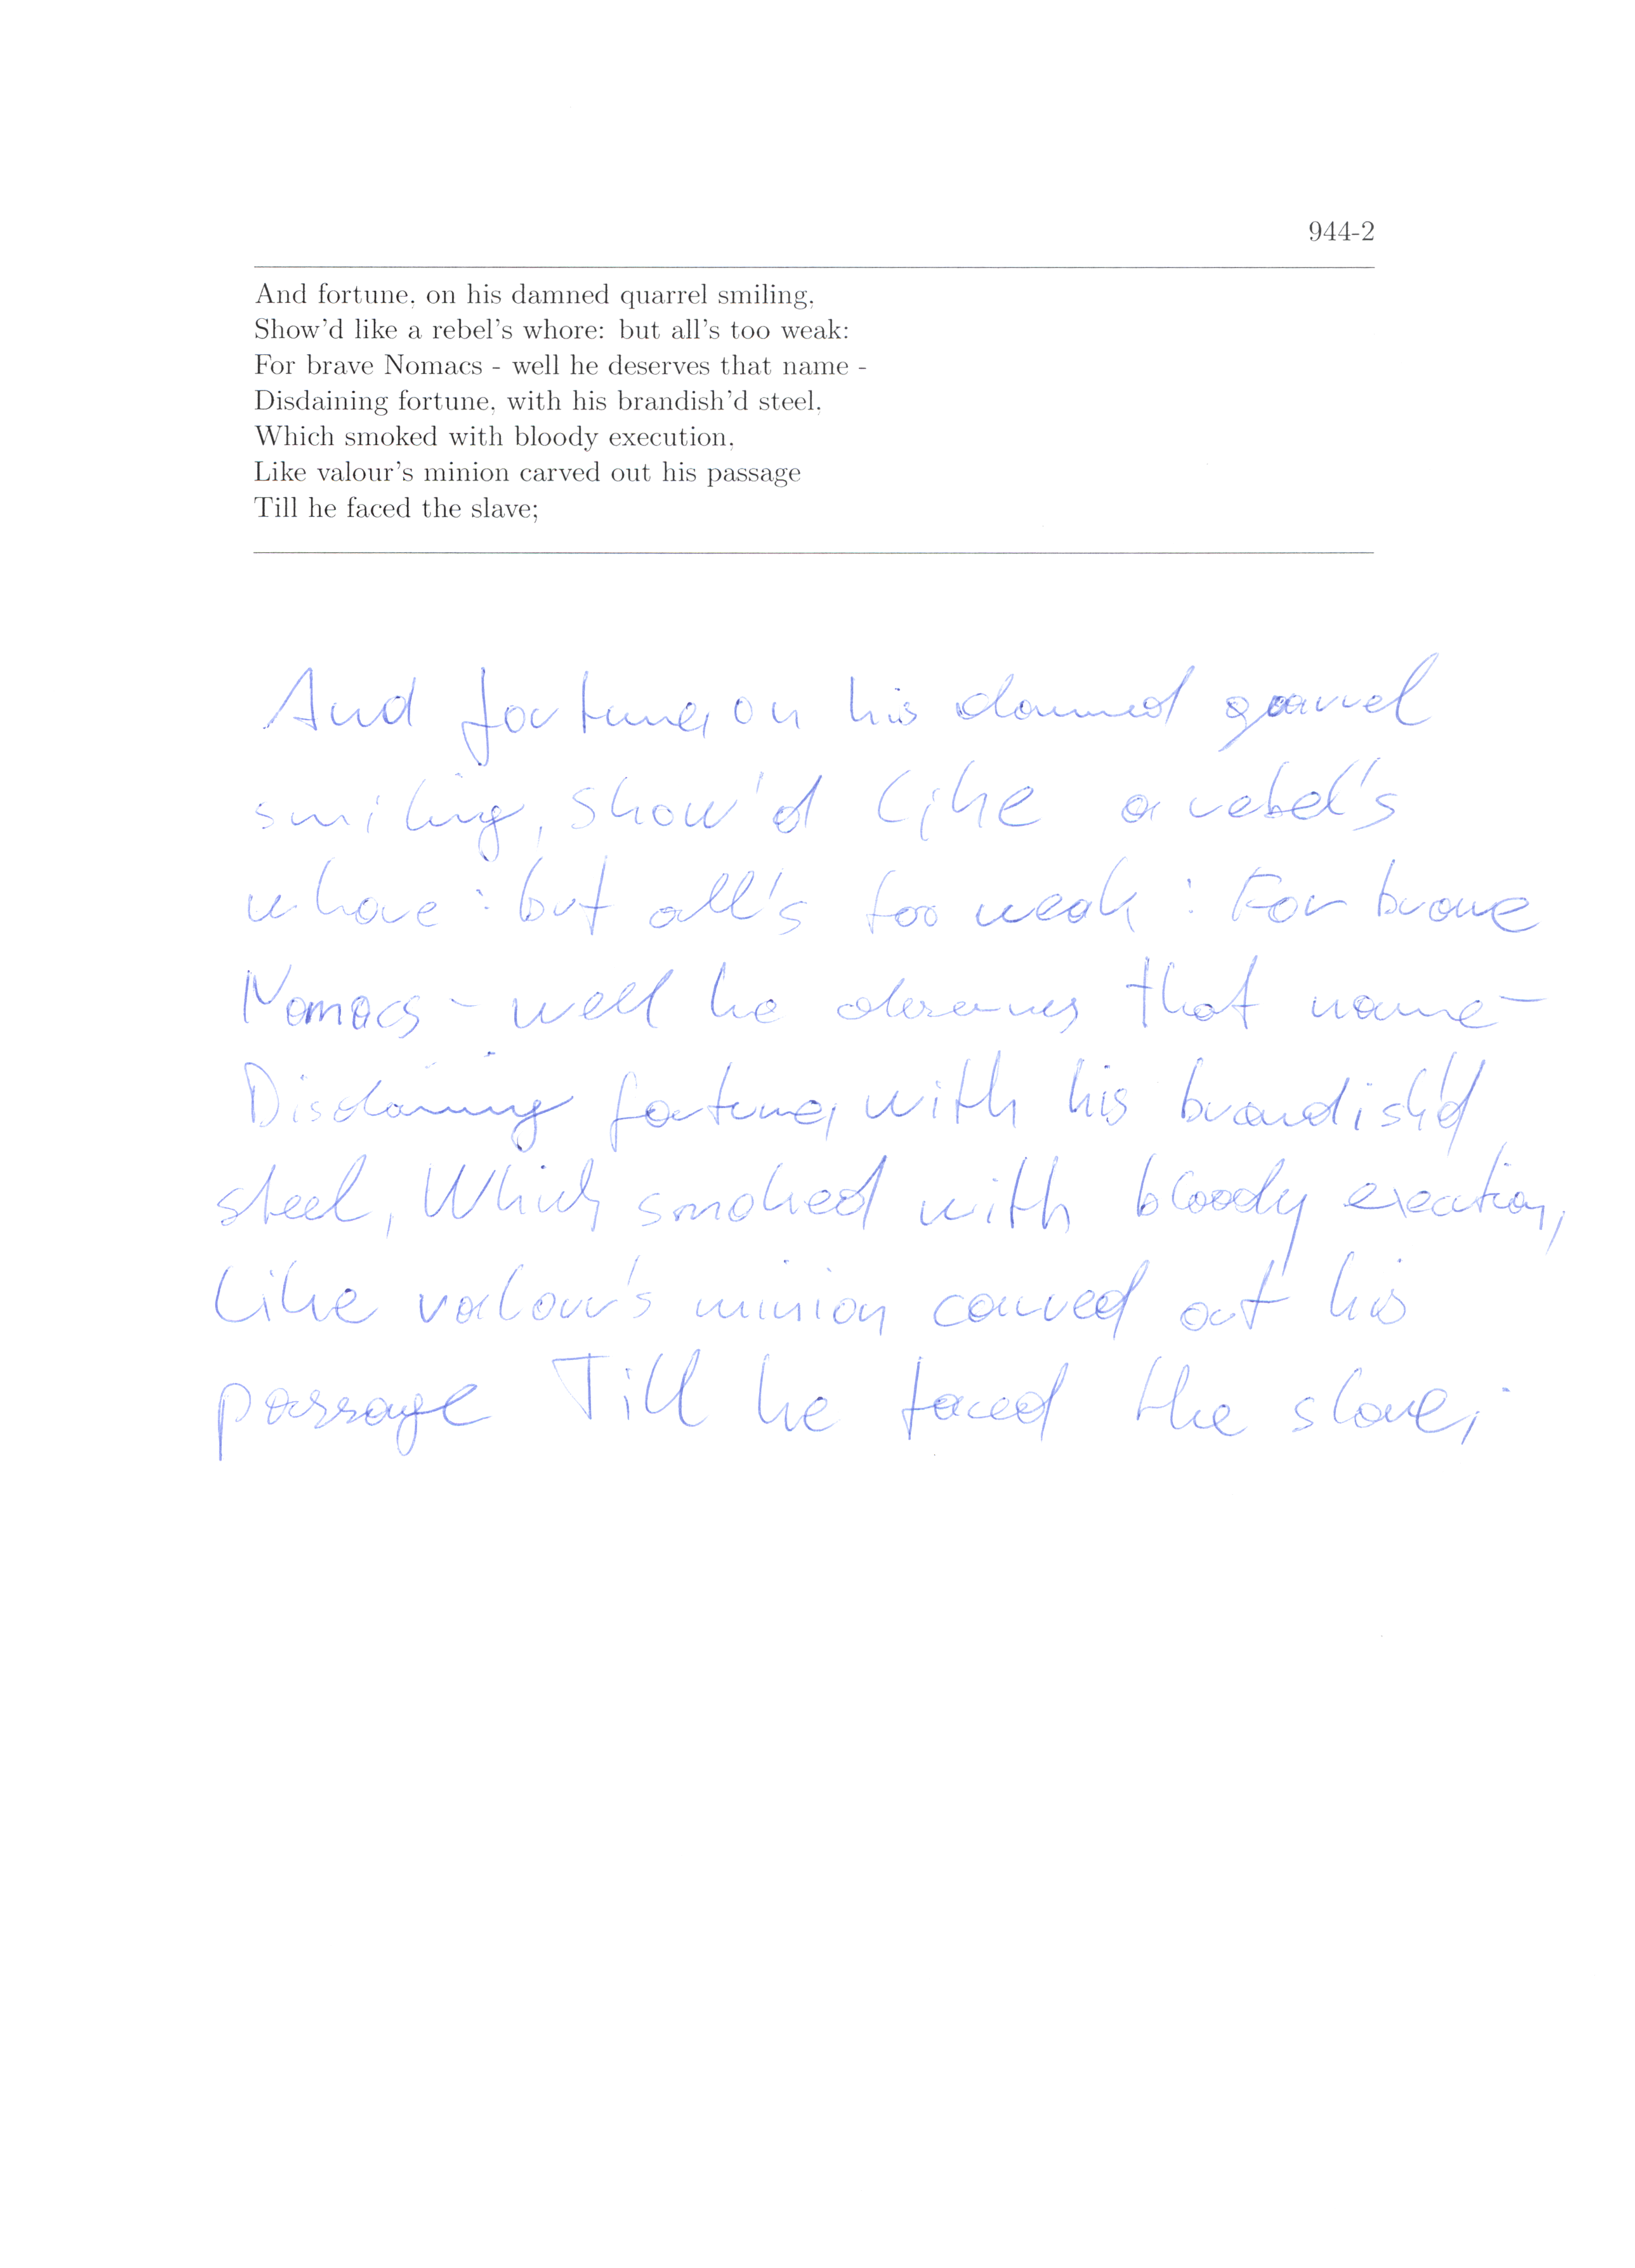 944-2
And fortune, on his damned quarrel smiling,
Show'd like a rebel's whore: but all's too weak:
For brave Nomacs - well he deserves that name -
Disdaining fortune, with his brandish'd steel,
Which smoked with bloody execution,
Like valour's minion carved out his passage
Till he faced the slave;
And fortune, on his damned quarrel
smiling, show'd like a rebel's
whore: but all's too weak: For brave
Nomacs - well he deserves that name -
Disdaining fortune, with his brandish'd
steel, Which smoked with bloody execution,
Like valour's minion carved out his
passage Till he faced the slave;